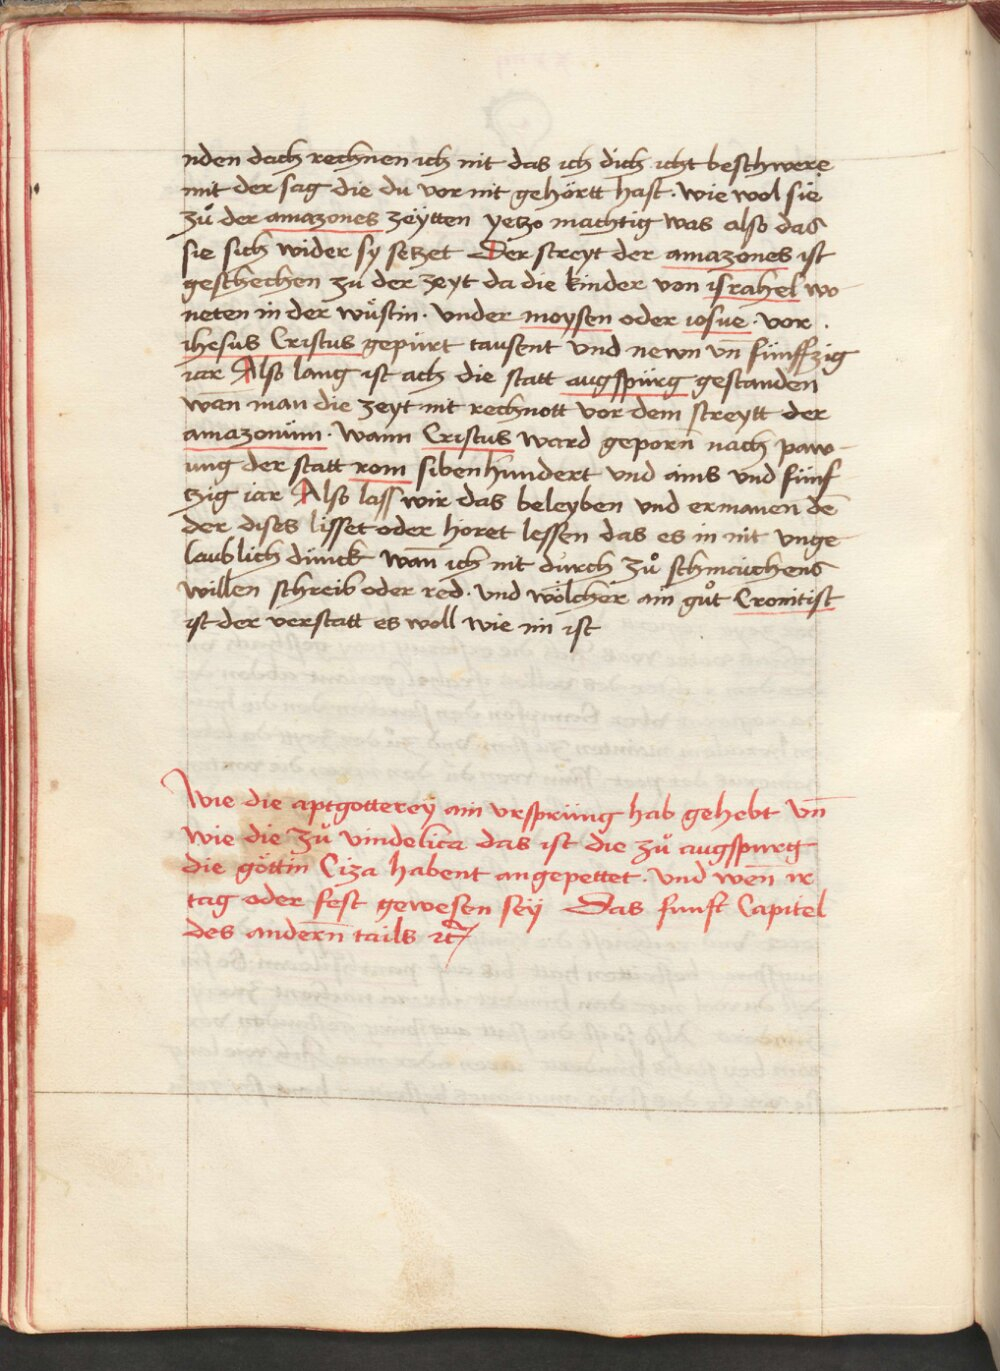 nden dach rechnen ich nit das ich dich icht beschwere
mit der sag die du vor nit gehörtt hast · wie wol sie
zů der amazones zeÿtten yetzo machtig was also das
sie sich wider sy setzet Der streyt der amazones ist
geschechen zu der zeyt da die kinder von israhel wo
neten in der wüstin · vnder moysen oder iosue · vor ·
ihesus Cristus gepürt tausent vnd newn vn̄ fünffzig
iar Also lang ist ach die statt augspürg gestanden
wan̄ man die zeyt nit rechnott vor dem streytt der
amazonüm · Wann Cristus ward geporn̄ nach paw-
ung der statt rom sibenhundert vnd ains vnd fünf
tzig iar Also lass wir das beleyben vnd ermanen dē
der dises lisset oder horet lessen das es in nit vnge-
laublich dünck wan̄ ich nit durch zů schmaichens
willen schreib oder red · vnd wölcher ain gůt Cronitist
ist der verstatt es woll wie im ist
Wie die aptgotterey ain vrsprüng hab gehebt vn̄
wie die zů vindelica das ist die zů augspurg
die göttin Ciza habent angepettet · vnd wen̄ ir
tag oder fest gewesen seÿ Das funft Capitel
des andern̄ tails ꝛc